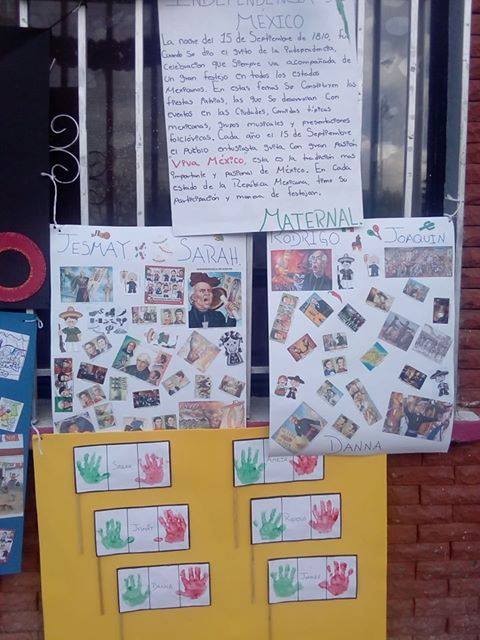 INDEPENDENCIA
MEXICO
La noche del 15 de Septiembre de 1810, fue
cuando se dio el grito de la Independencia,
celebracion que siempre va acompañada de
un gran festejo en todos los estados
Mexicanos. En estas fechas se constituyen las
fiestas Patrias, las que se desarrollan con
eventos en las Ciudades, Comidas típicas
mexicanas, grupos musicales y presentaciones
folclóricas. Cada año el 15 de Septiembre
el Pueblo entusiasta grita con gran pasión
VIVA MÉXICO, esta es la tradición mas
importante y pasional de México. En cada
estado de la República Mexicana, tiene su
Participación y manera de festejar.
MATERNAL.
JESMAY SARAH.
RODRIGO JOAQUIN
DANNA
SARAH
JESMAY
RODRIGO
DANNA